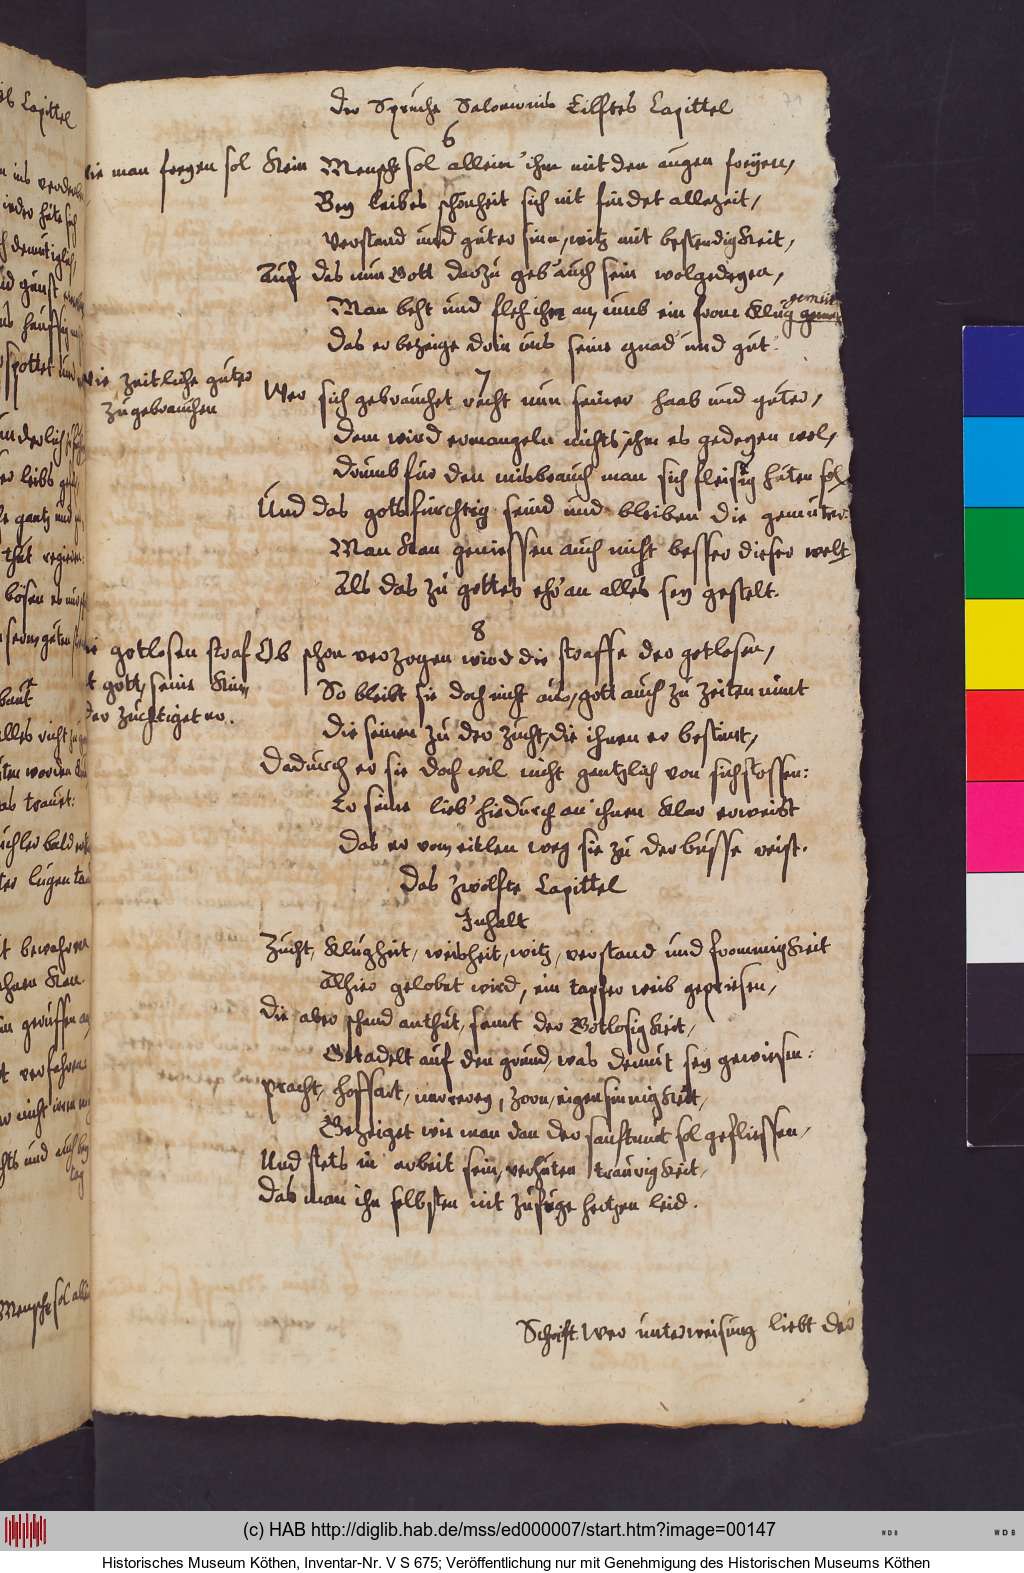 Der Spruche Salomonis Eilftes Capittel
71
6
wie man freyen sol
Kein Mensche sol allein ihm mit den augen freÿen,
Bey leibes schönheit sich nit findet allezeit,
Verstand und guter sinn, witz mit bestendigkeit,
Auf das nun Gott darzu geb auch sein wolgedeyen,
Man beht und fleh ihn an, umb ein from klug gemüt
Das er bezeige drin uns seine gnad und güt.
wie zeitliche güter
zu gebrauchen
7
Wer sich gebrauchet recht nun seiner haab und güter,
Dem wird ermangeln nichts, ihm es gedeyen wol,
Drumb für den misbrauch man sich fleisig hüten sol
Und das gottsfürchtig seind und bleiben die gemüter:
Man kan geniessen auch nicht besser dieser welt
Als das zu gottes ehr an alles sey gestelt.
8
die gotlosen straf
gott, seine Kin,
der züchtiget er.
Ob schon verzogen wird die straffe der gotlosen,
So bleibt sie doch nicht aus, gott auch zu zeiten nimt
Die seinen zu der zucht, die ihnen er bestimt,
Dadurch er sie doch wil nicht gentzlich von sich stossen:
Er seine lieb hiedurch an ihnen klar erweist
Das er vom eitlen weg sie zu der busse reist.
Das zwölfte Capittel
Inhalt
Zucht, klugheit, weisheit, witz, verstand und frommigkeit
Alhier gelobet wird, ein tapfer weib gepriesen,
Die aber schand anthut, samt der Gotlosigkeit,
Getadelt auf den grund, was demut sey gewiesen:
Pracht, hoffart, narrerey, zorn, eigensinnigkeit,
Gezeiget wie man dan der sanftmut sol gefliessen,
Und stets in arbeit sein, verhüten traurigkeit,
Das man ihn selbsten nit zufuge hertzen leid.
Schrift. Wer unterweisung liebt der
(c) HAB http://diglib.hab.de/mss/ed000007/start.htm?image=00147
Historisches Museum Köthen, Inventar-Nr. V S 675; Veröffentlichung nur mit Genehmigung des Historischen Museums Köthen